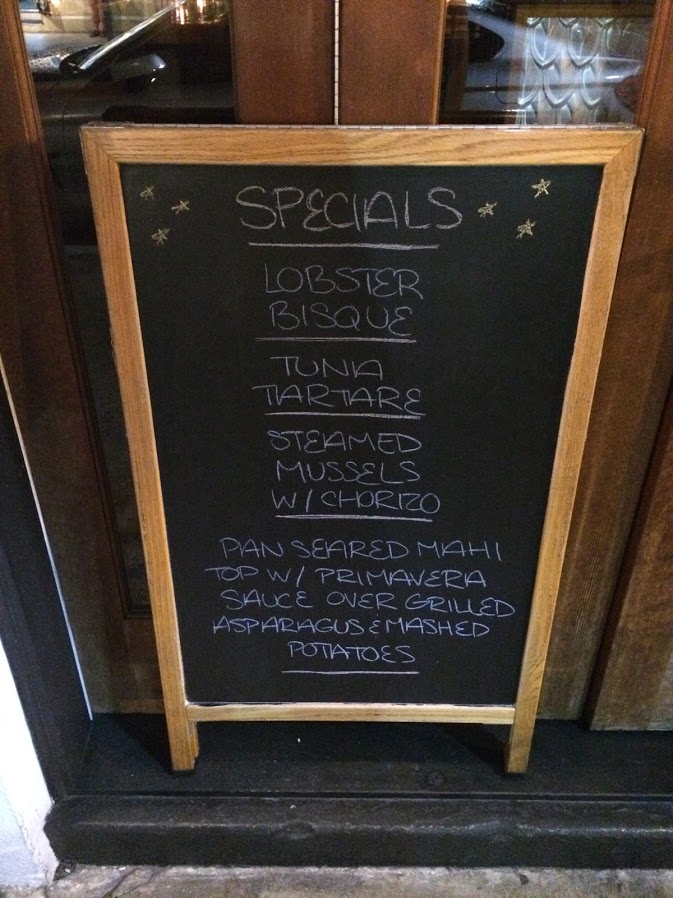 SPECIALS
LOBSTER
BISQUE
TUNA
TARTARE
STEAMED
MUSSELS
W/ CHORIZO
PAN SEARED MAHI
TOP W/ PRIMAVERA
SAUCE OVER GRILLED
ASPARAGUS & MASHED
POTATOES